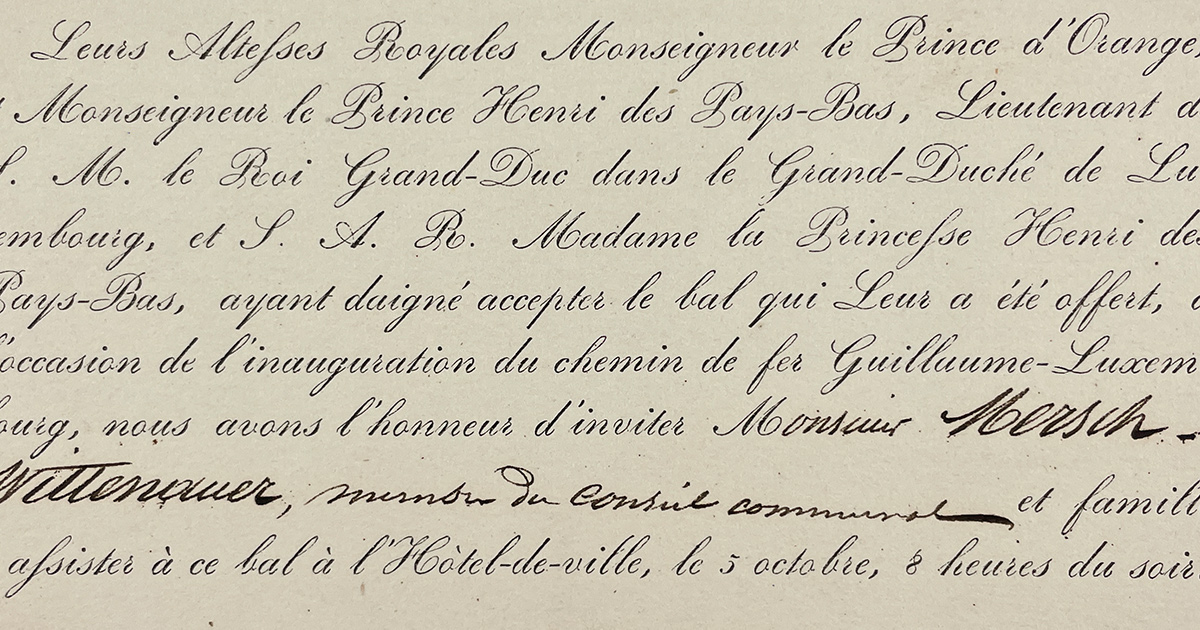 Leurs Altesses Royales Monseigneur le Prince d'Orange,
Monseigneur le Prince Henri des Pays-Bas, Lieutenant d
S. M. le Roi Grand-Duc dans le Grand-Duché de Lu
embourg, et S. A. R. Madame la Princesse Henri des
Pays-Bas, ayant daigné accepter le bal qui Leur a été offert, à
l'occasion de l'inauguration du chemin de fer Guillaume-Luxem
ourg, nous avons l'honneur d'inviter Monsieur Mersch -
Wittenauer, membre du conseil communal et famill
assister à ce bal à l'Hôtel-de-ville, le 5 octobre, 8 heures du soir